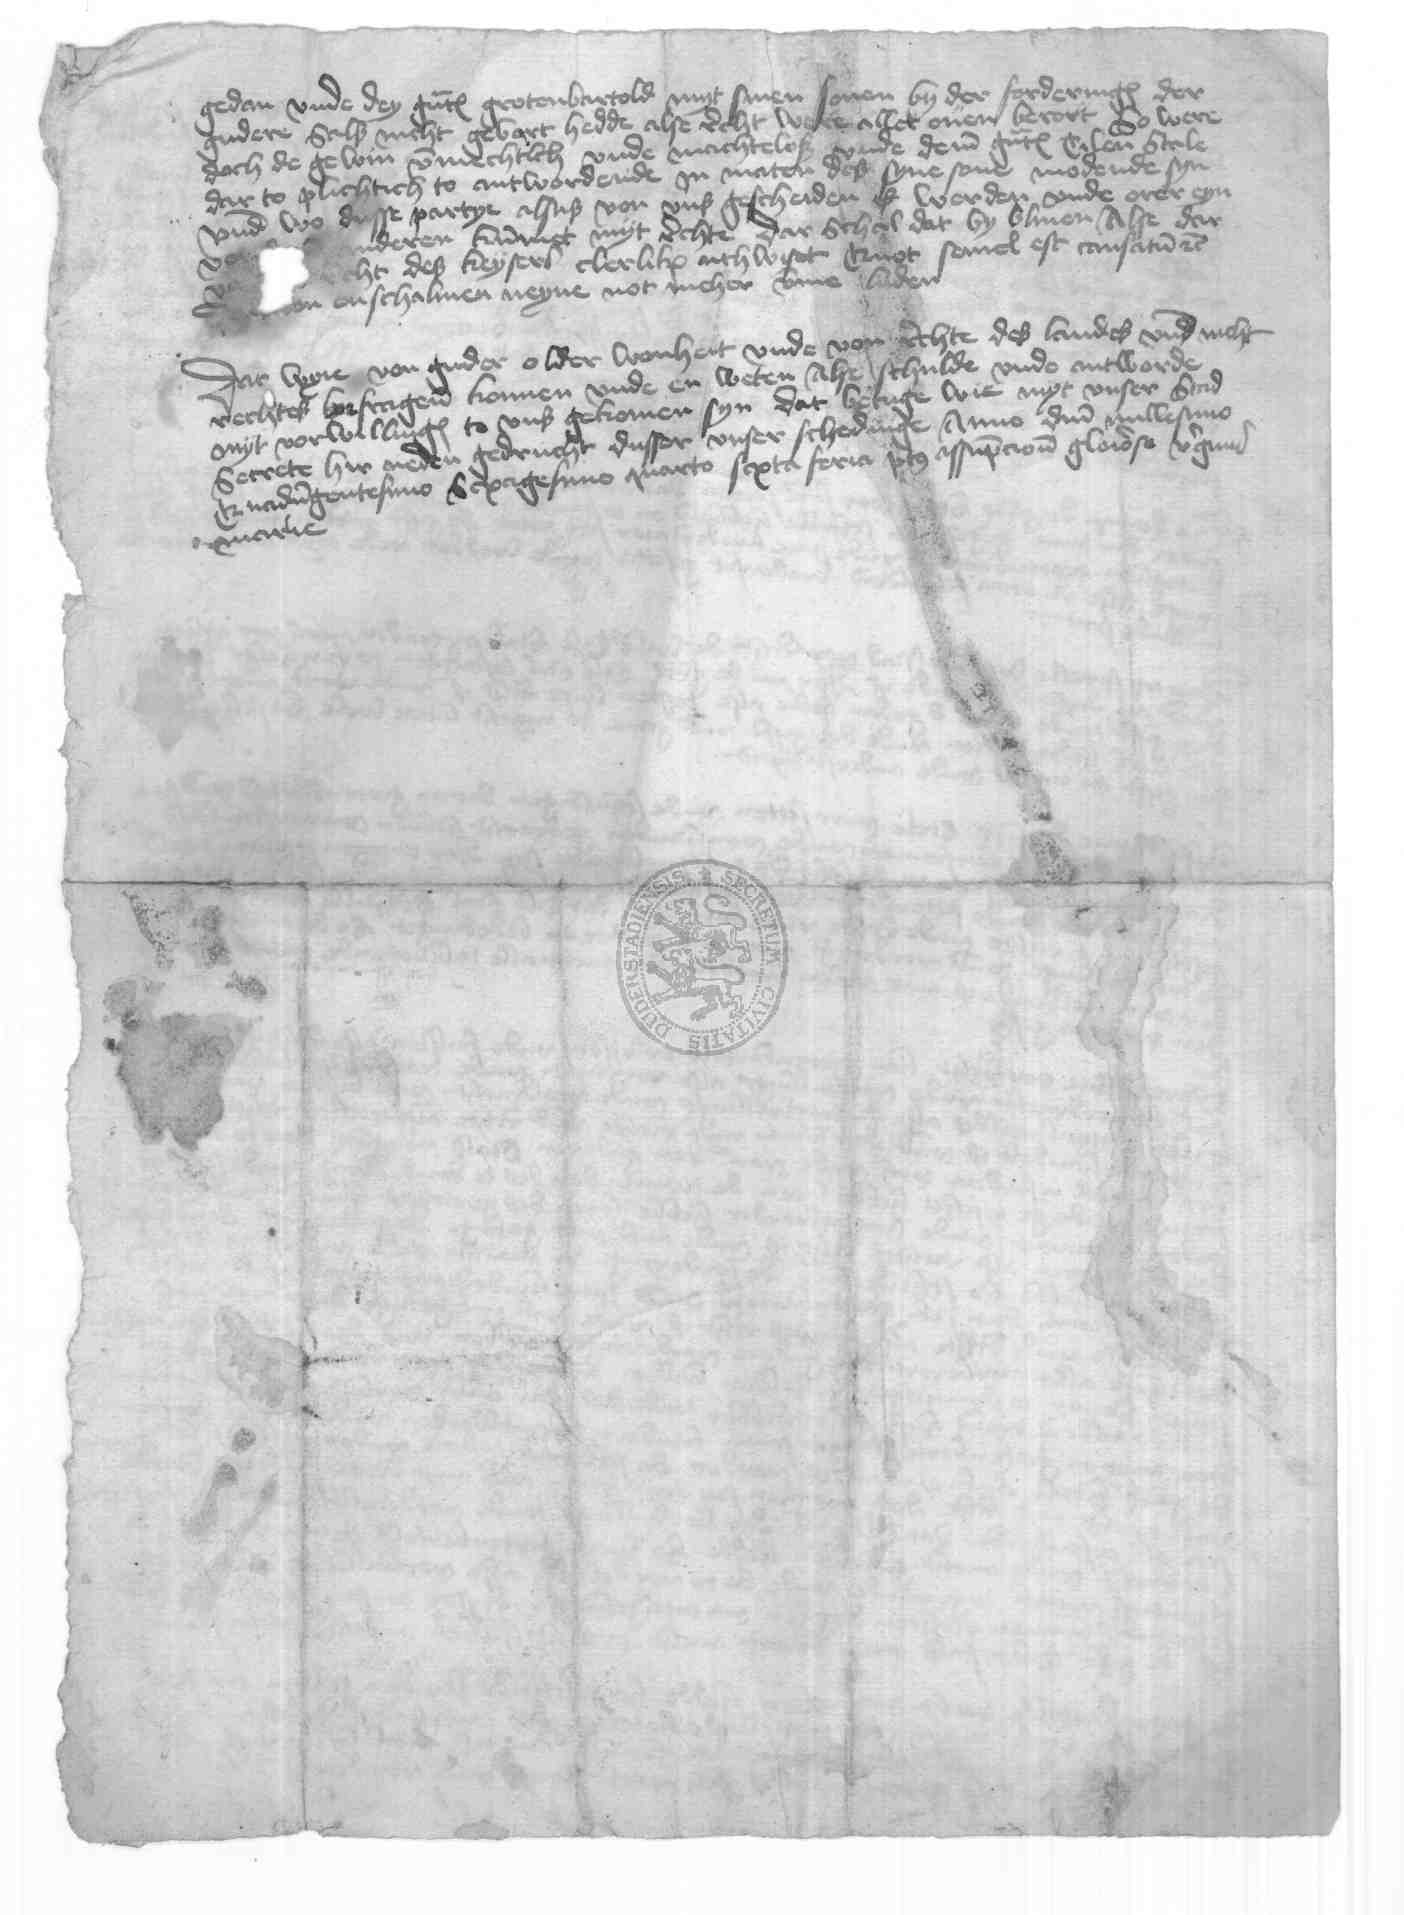 gedan vnde dey gut͠ grotenbartold myt sinen sonen by der forderinge der
gudere Salß nicht gebart hedde alse recht were allet ouen berort So were
doch de gewin vnmechtich vnde machteloß vnde dem gut͠ Tilen Stale
dar to plichtich to antwordende in maten deß syne sone modende syn
vnd wo dusse partye alsuß von vnß gescheiden werden vnde orer eyn
anderen kumet myt rechte Dar Schal dat by bliuen Alse dar
cht deß keyserß clerlik vthwiset Quot semel est causatu
on enschaluen neyne not meher vme liden
Dat wie von guder older wonheit vnde von rechte deß landeß vnd nicht
rechteß konnen vnde en weten Alse schulde vnde antworde
myt vorwillinge to vnß gekomen syn dat betuge wie myt vnser Stad
Secrete hir neden gedrucht dusser vnser schedinge Anno dm̄ millesimo
Quadringentesimo Sexagesimo quarto sexta feria pt9 assupcionū gloiose v'gnis
marie
DUDERSTADIENSIS SECRETUM CIVITATIS